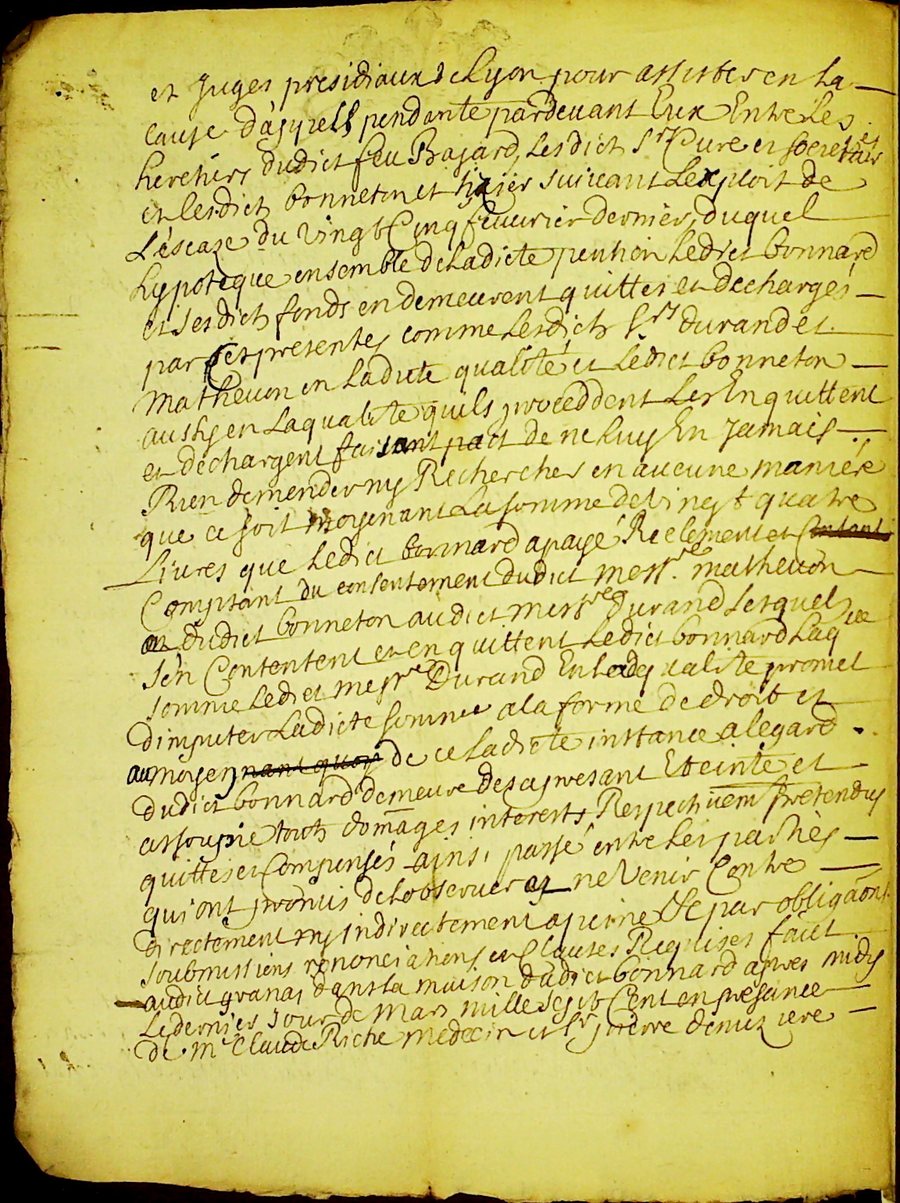 et Juges presidiaux de Lyon pour assister en la
cause d'appell pendante pardevant Eux Entre Les
heretiers dudict feu Bajard, Lesdicts Srs Cure et societaires
et lesdicts bonneton et suivant Lexploit de
du vingt Cinq feuvrier dernier, duquel
hypoteque ensemble de Ladicte pention Ledict bonnard
et sesdicts fonds en demeurent quittes et decharges
par Ces presentes comme Lesdicts Srs durand et
matheuon en Ladicte qualité et Ledict bonneton
aussy en La qualité quils proceddent Les En quittent
et dechargent faisant pact de ne luy En Jamais
Rien demender ny Rechercher en aucune maniére
que ce soit moyenant La somme de vingt quatre
Livres que Ledict bonnard a payé Reelement et contant
Comptant du consentement dudict messre. matheuon
et dudict bonneton audict messre Durand Lesquels
s'en Contentent et en quittent Ledict bonnard Laqlle
somme Ledict messre Durand En Ladte qualité promet
d'imputer Ladicte somme a la forme de droit et
au moyen nant quoy de ce Ladicte instance a legard
dudict bonnard demeure des a present Eteinte et
assoupie touts domages interests Respectivemt pretendus
quittes et Compensés ainsi passé entre Les parties
qui ont promis de Lobserver et ne Venir Contre
directement ny indirectement a peine &c par obligaons
soubmissions renonciations et Clauses Requises faict
audict granas dans La maison dudict bonnard apres midy
Le dernier jour de Mars mille sept Cent en presance
de Me Claude Riche medecin et Sr pierre